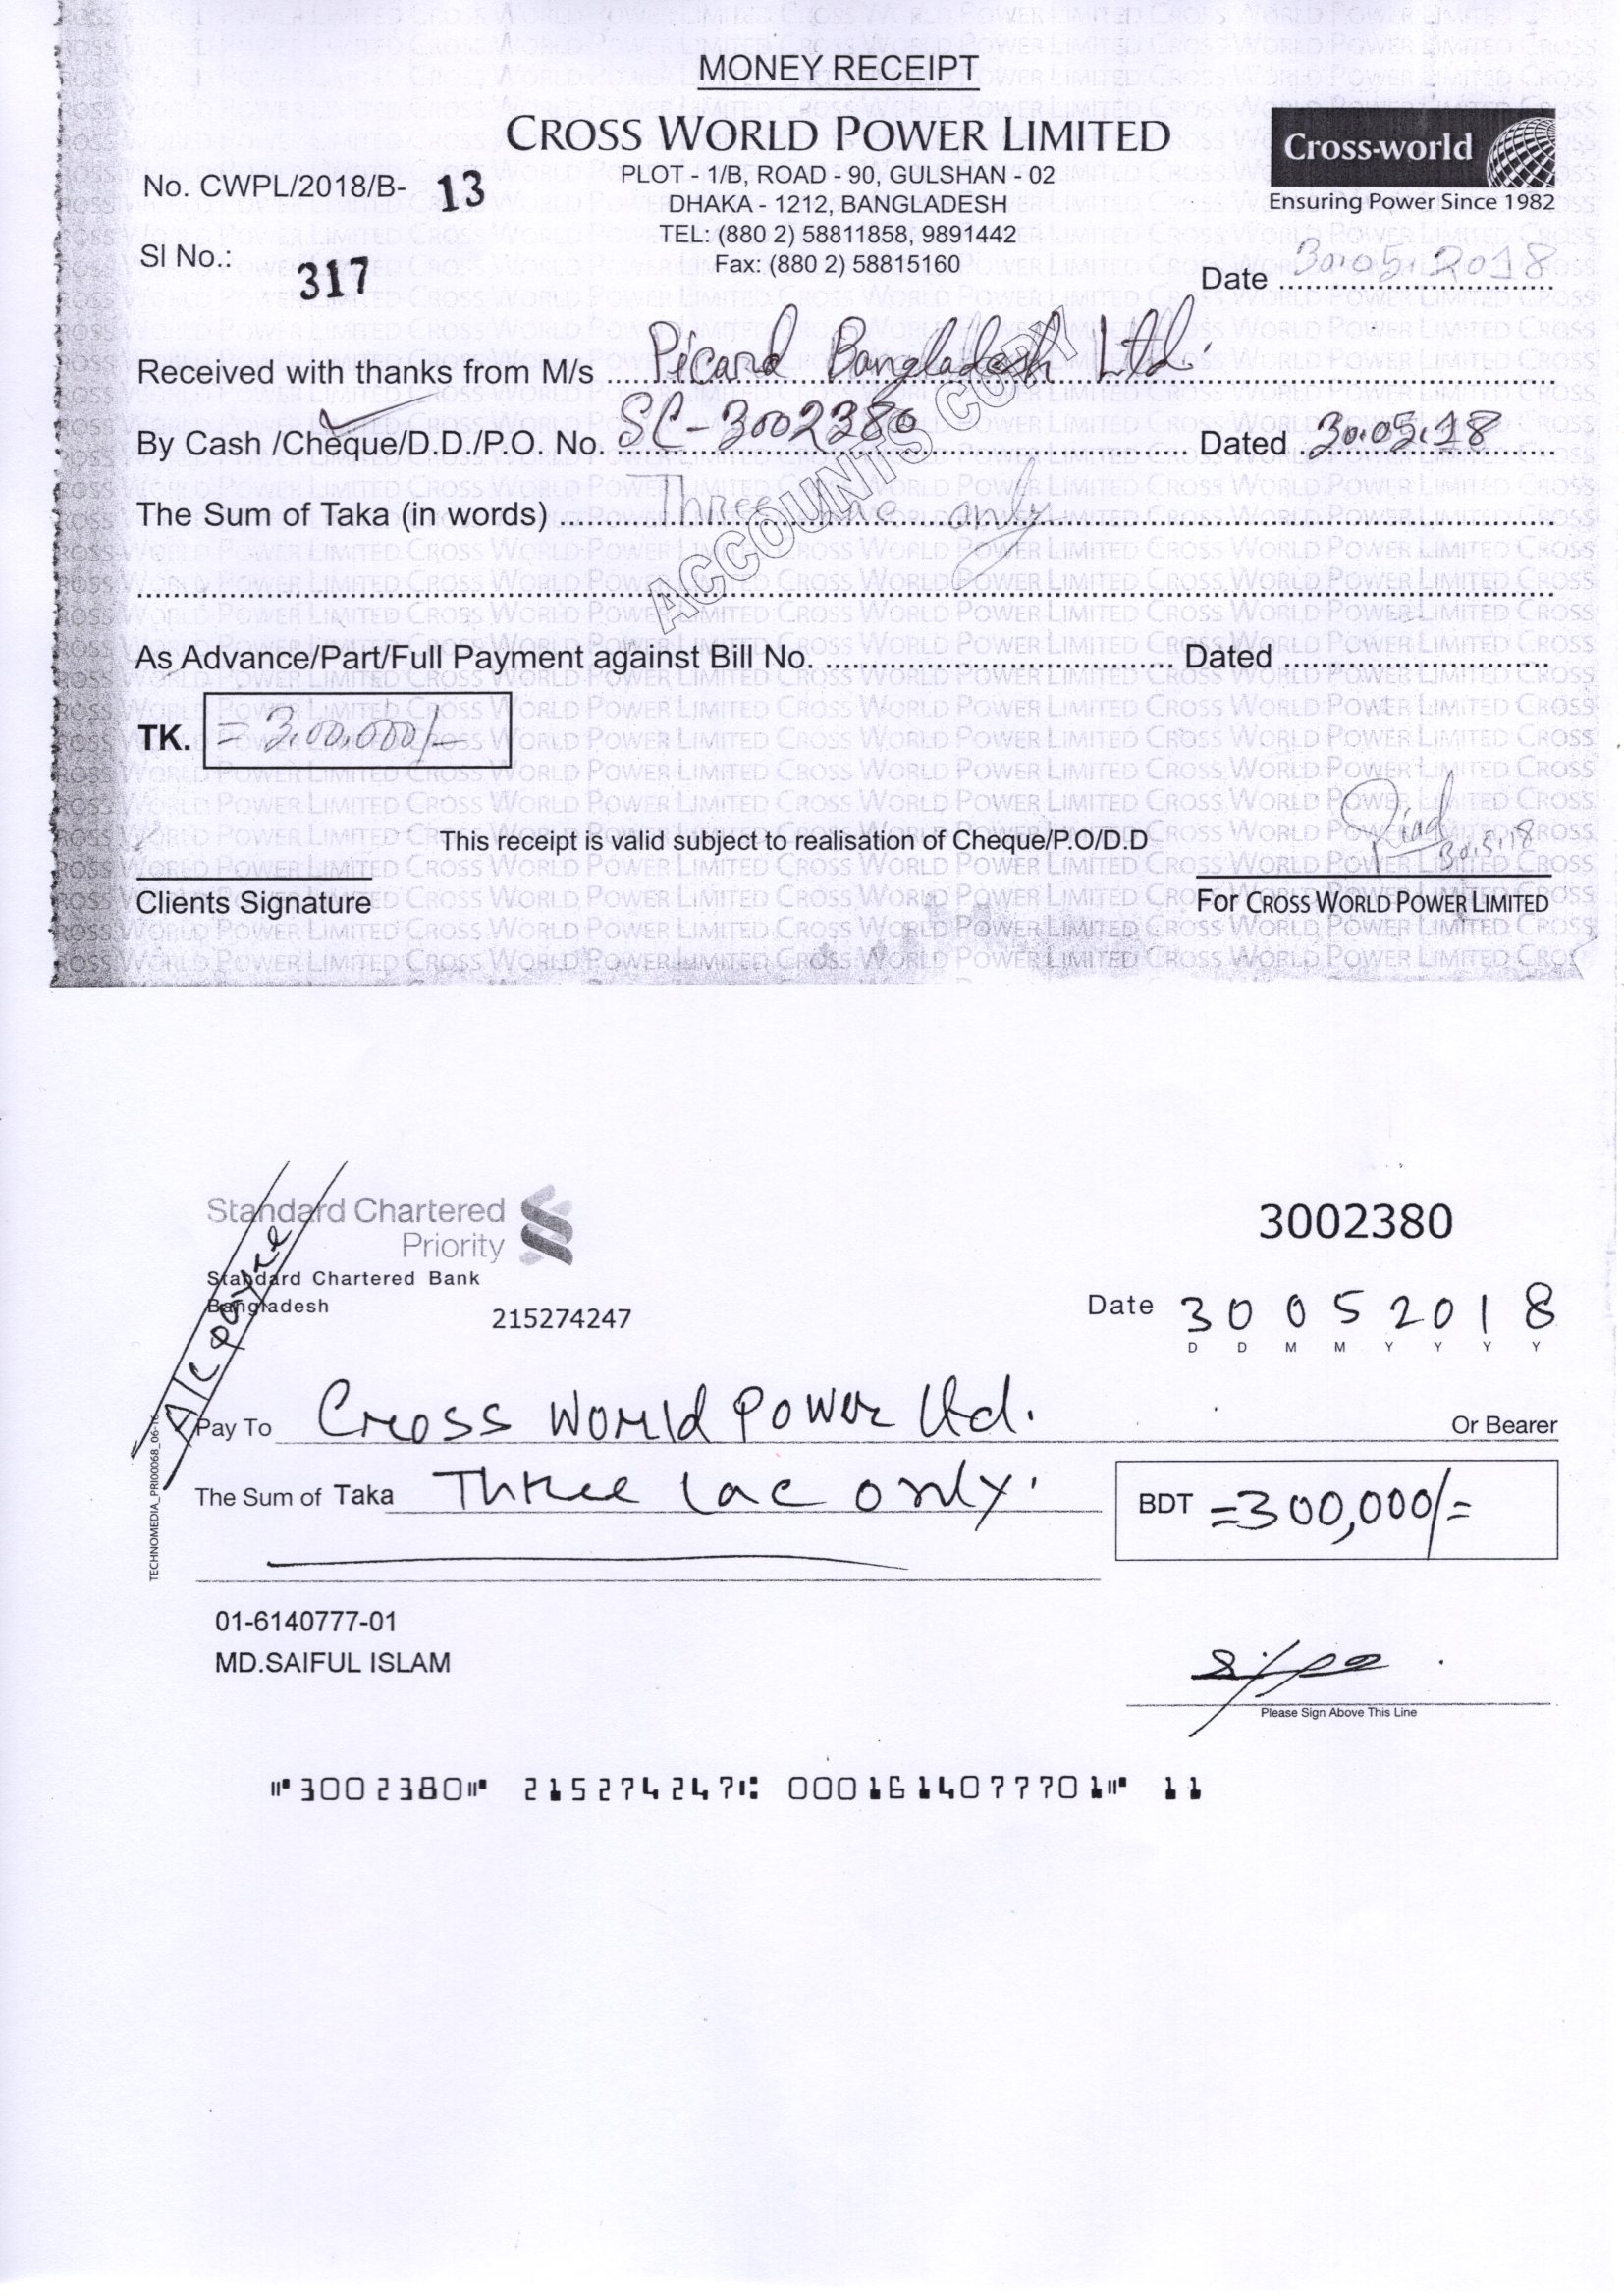 MONEY RECEIPT
CROSS WORLD POWER LIMITED
PLOT - 1/B, ROAD - 90, GULSHAN - 02
DHAKA - 1212, BANGLADESH
TEL: (880 2) 58811858, 9891442
Fax: (880 2) 58815160
Cross-world
Ensuring Power Since 1982
No. CWPL/2018/B- 13
Sl No.: 317
Date 30.05.2018
Received with thanks from M/s Picard Bangladesh Ltd.
By Cash /Cheque/D.D./P.O. No. SC-3002380 Dated 30.05.18
The Sum of Taka (in words) Three lac only
ACCOUNTS COPY
As Advance/Part/Full Payment against Bill No. Dated
TK. =3,00,000/-
This receipt is valid subject to realisation of Cheque/P.O/D.D
Riad
30.5.18
Clients Signature
For CROSS WORLD POWER LIMITED
Standard Chartered
Priority
Standard Chartered Bank
Bangladesh
215274247
A/C payee
3002380
Date 30 05 2018
D D M M Y Y Y Y
Pay To Cross World Power Ltd. Or Bearer
The Sum of Taka Three lac only.
BDT =300,000/=
TECHNOMEDIA_PRI00068_06-16
01-6140777-01
MD.SAIFUL ISLAM
Please Sign Above This Line
⑈3002380⑈ 215274247⑆ 0001614077701⑈ 11